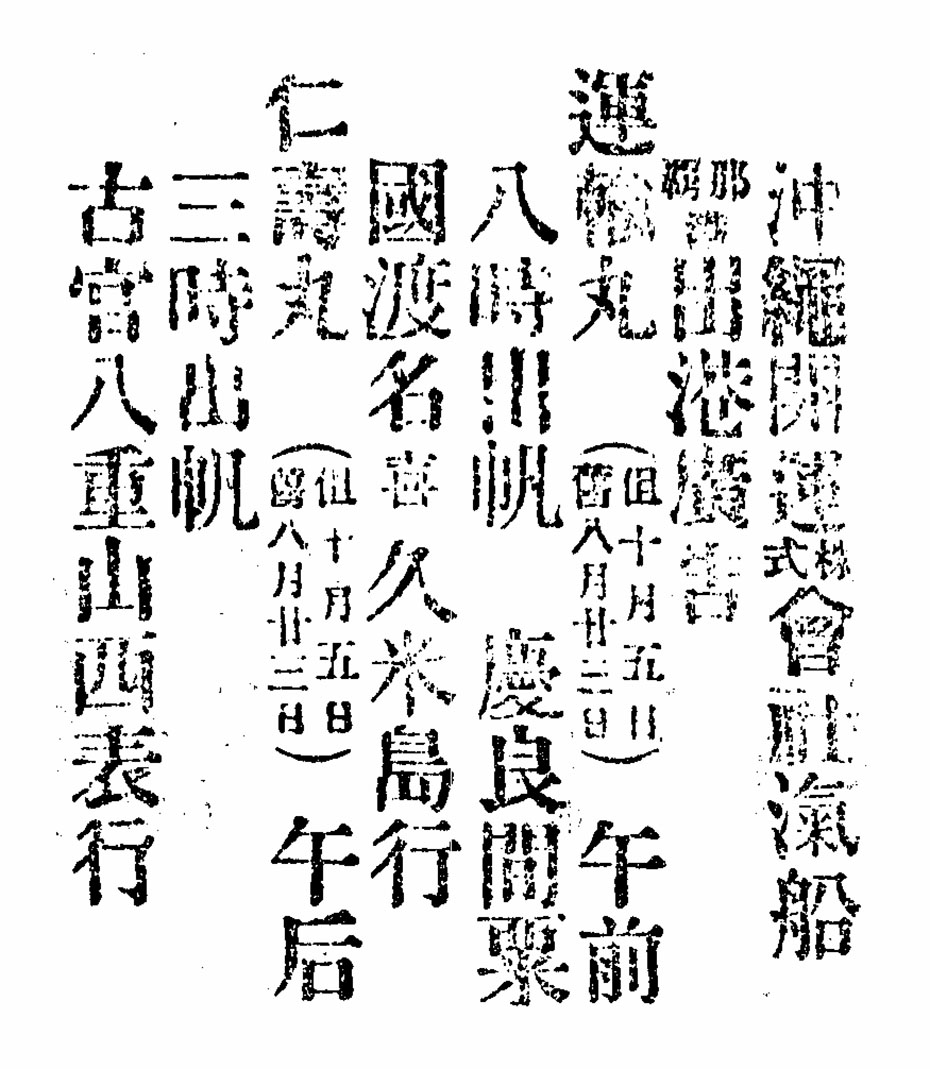 沖繩開運株式會社滊船
那覇港出港廣告
運輸丸（但十月五日舊八月廿三日）午前
八時出帆 慶良間粟
國渡名喜久米島行
仁壽丸（但十月五日舊八月廿三日）午后
三時出帆
古宮八重山西表行